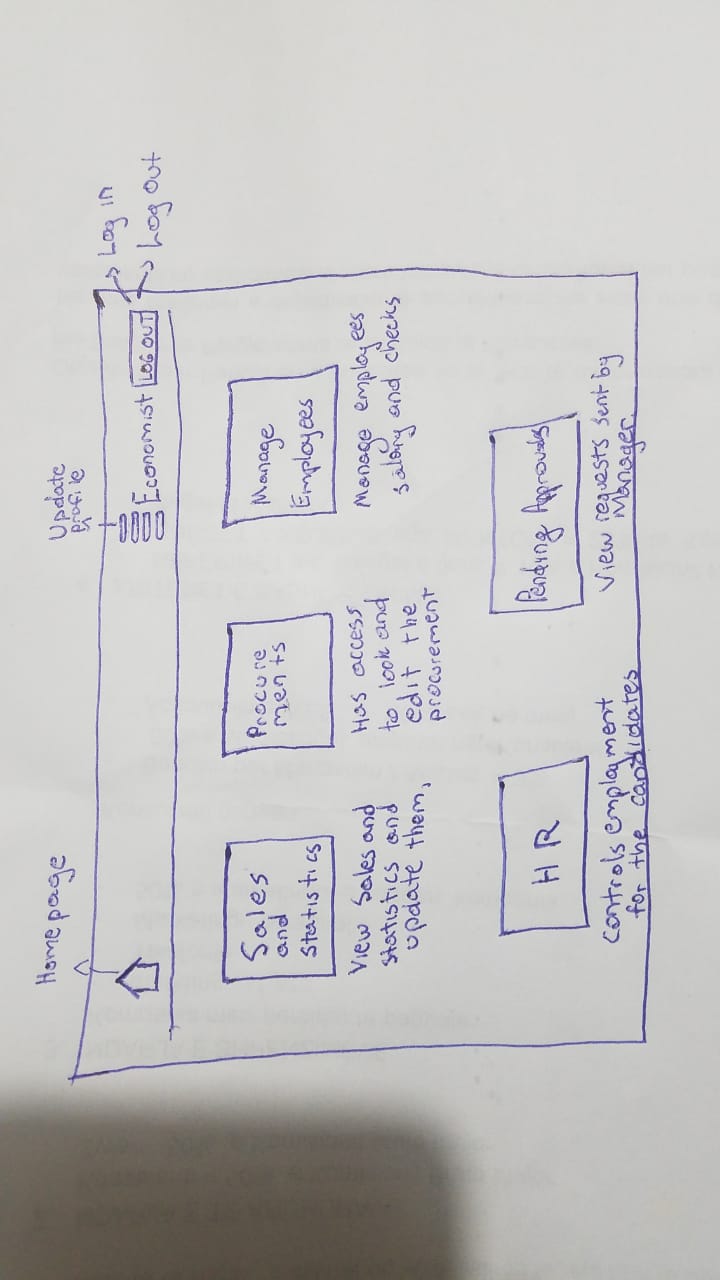 Homepage
Update
Profile
Log in
Log Out
Economist
LOG OUT
Sales
and
Statistics
View Sales and
statistics and
update them,
Procure
ments
Has access
to look and
edit the
procurement
Manage
Employees
Manage employees
salary and checks
HR
Controls employment
for the candidates
Pending Approvals
View requests sent by
Manager.